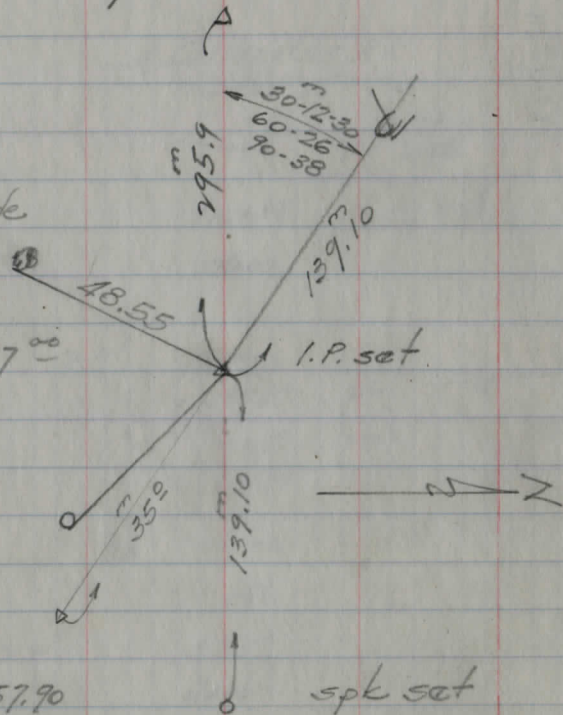 30-12-30
60-26
90-38
m
295.9
m
139.10
48.55
I.P. set
7 00
m
35.0
m
139.10
N
57.90
spk set